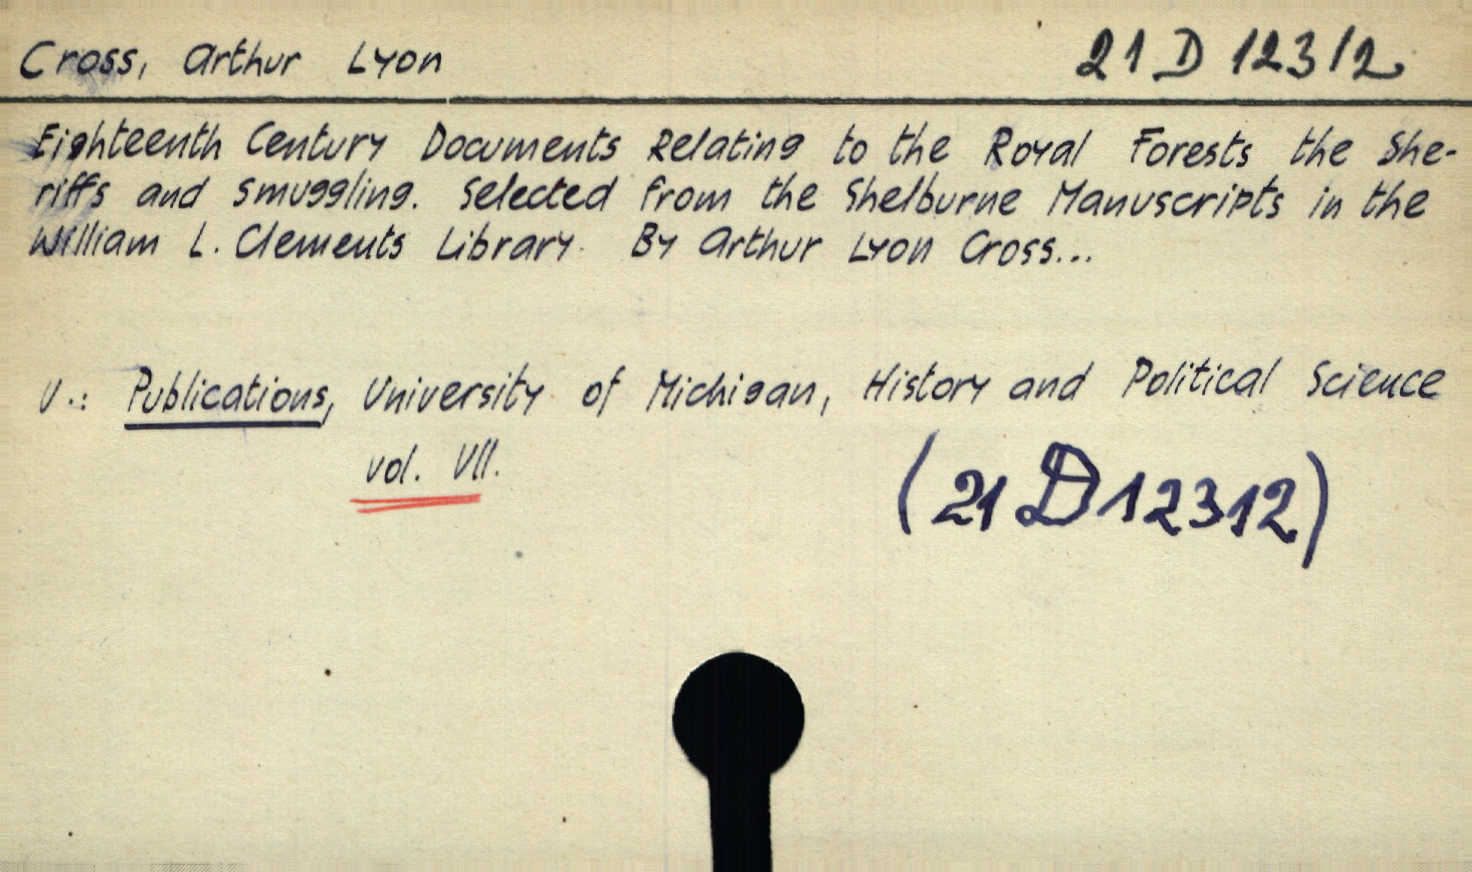 Cross, Arthur Lyon 21 D 12312
Eighteenth Century Documents Relating to the Royal Forests the She-
riffs and Smuggling. Selected from the Shelburne Manuscripts in the
William L. Clements Library. By Arthur Lyon Cross...
V.: Publications, University of Michigan, History and Political Science
vol. VII.
(21 D 12312)